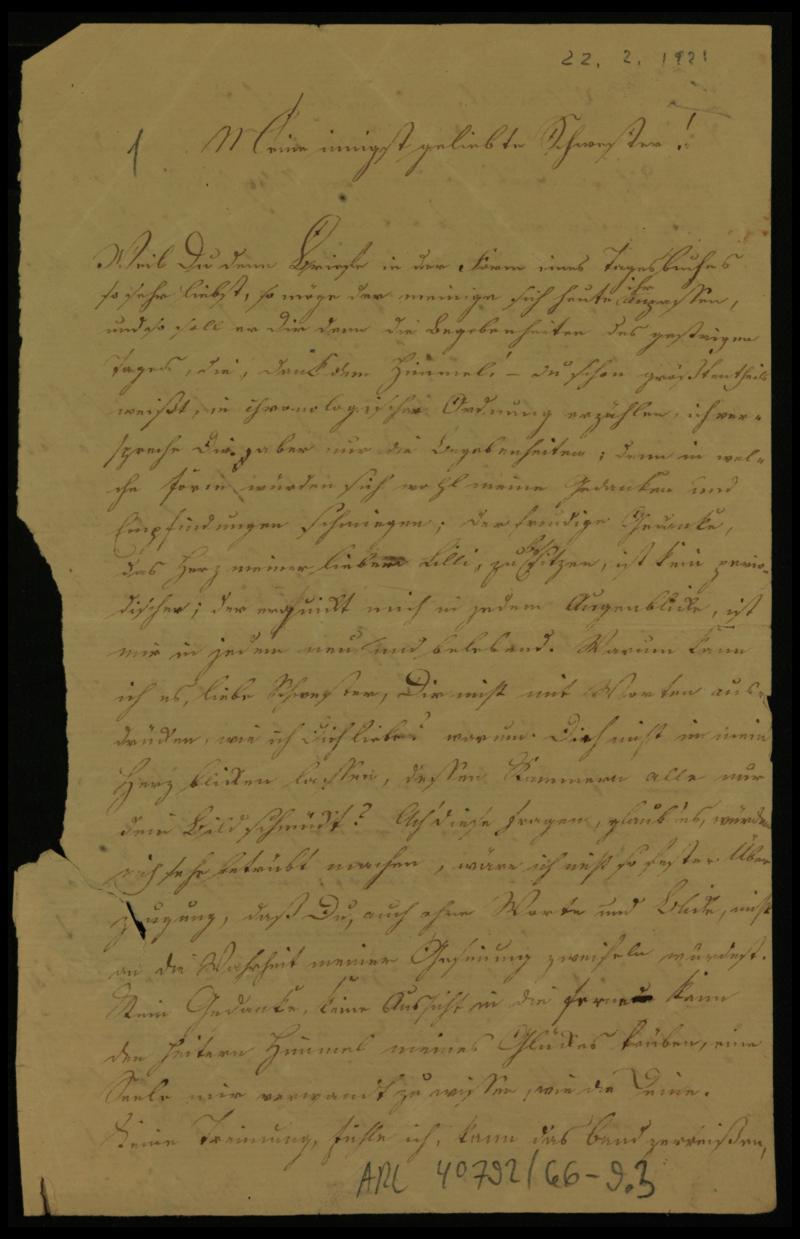 22. 2. 1921
1 Meine innigst geliebte Schwester!
Weil Du denn Briefe in der Form eines Tagesbuches
so sehr liebst, so möge der meinige sich heute ihr anpassen,
und so soll er Dir denn die Begebenheiten des gestrigen
Tages, die, dank dem Himmel! – du schon größtentheils
weißt, in chronologischer Ordnung erzählen, ich ver-
spreche Dir aber nur die Begebenheiten; denn in wel-
che Form würden sich wohl meine Gedanken und
Empfindungen schmiegen; der freudige Gedanke,
das Herz meiner lieben Lilli, zu besitzen, ist kein perio-
discher; der erquickt mich in jedem Augenblicke, ist
mir in jedem neu und belebend. Warum kann
ich es, liebe Schwester, Dir nicht mit Worten aus-
drücken, wie ich Dich liebe? warum Dich nicht in mein
Herz blicken lassen, dessen Kammern alle nur
dein Bild schmückt? Ach diese Fragen, glaub es, würden
mich sehr betrübt machen, wäre ich nicht so fester Über
zeugung, daß Du, auch ohne Worte und Blicke, nicht
an die Wahrheit meiner Gesinnung zweifeln würdest.
Kein Gedanke, keine Aussicht in die Ferne kann
den heitern Himmel meines Glückes trüben, eine
Seele mir verwandt zu wissen, wie die Deine.
Keine Trennung, fühle ich, kann das Band zerreißen,
ARC 40792/66-9.3